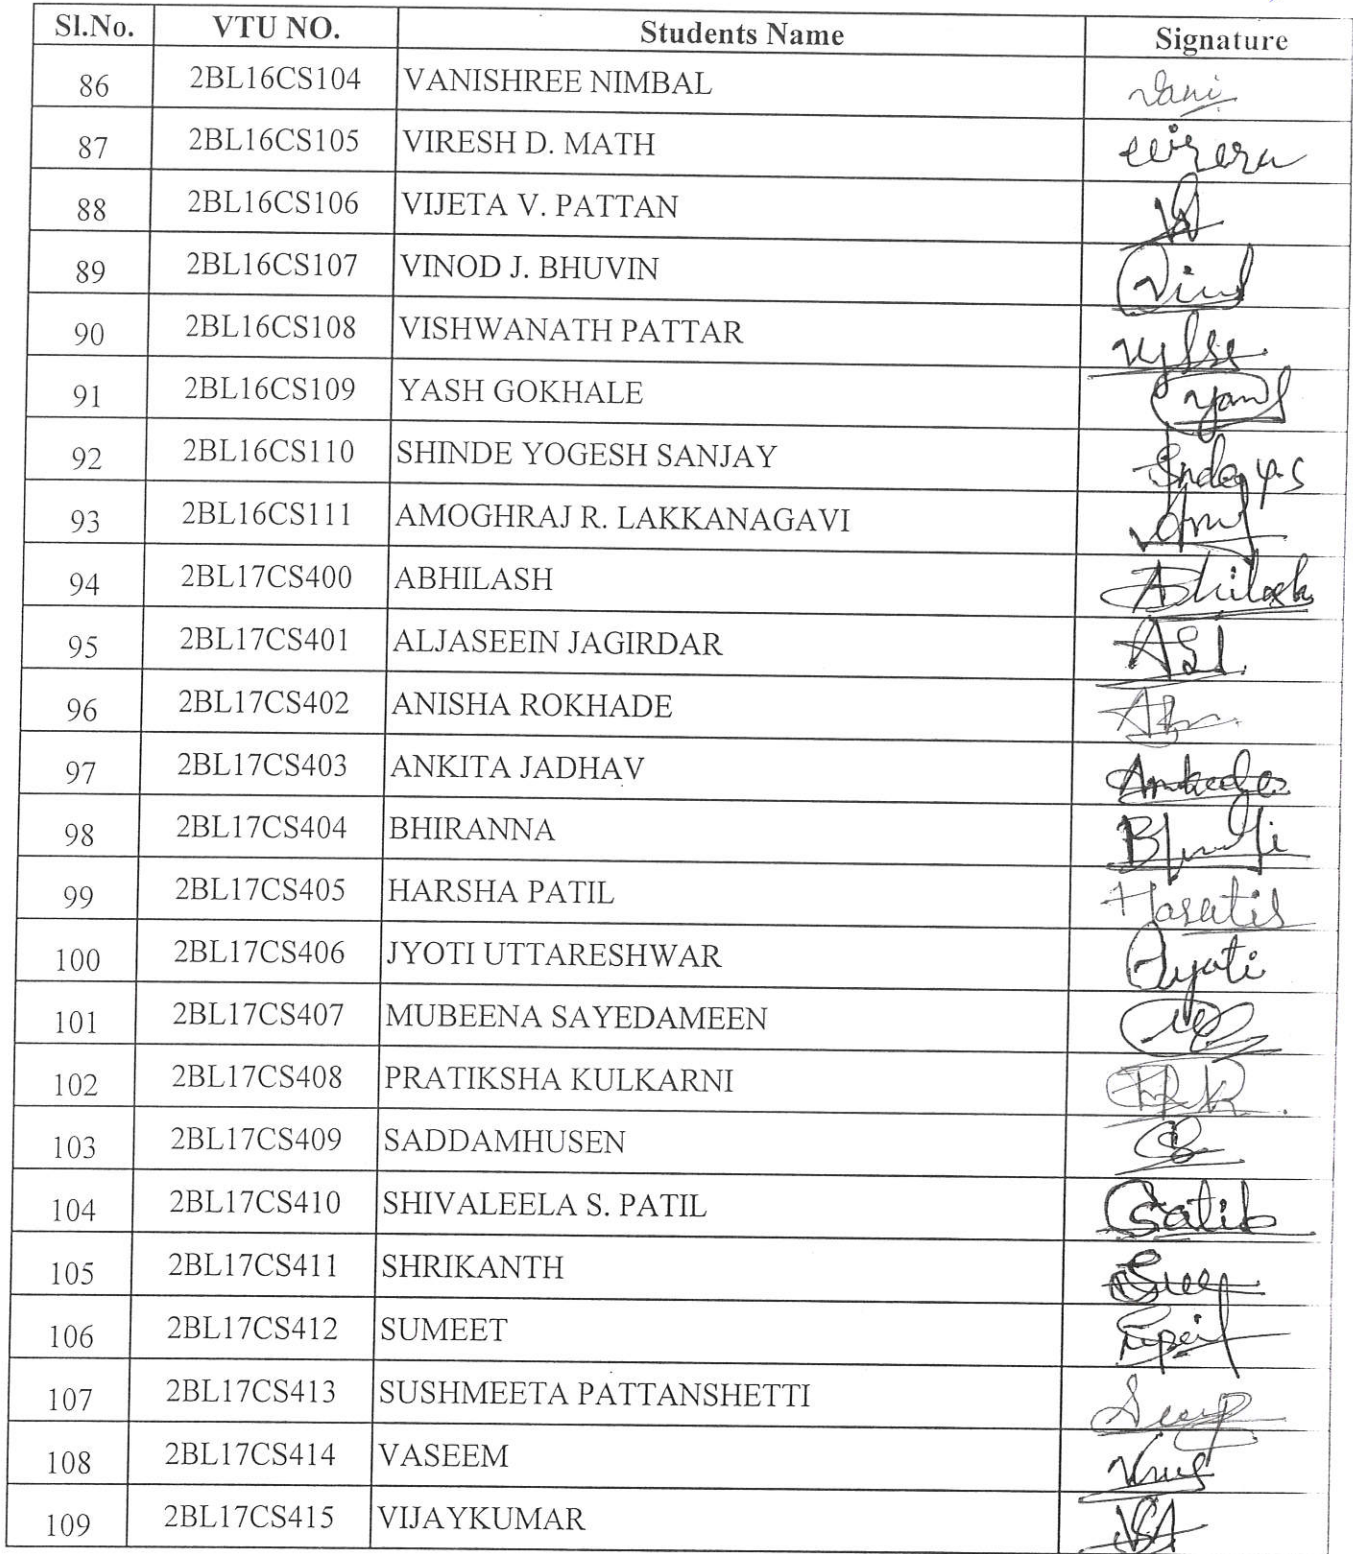 Sl.No. VTU NO. Students Name Signature
86 2BL16CS104 VANISHREE NIMBAL Vani
87 2BL16CS105 VIRESH D. MATH
88 2BL16CS106 VIJETA V. PATTAN
89 2BL16CS107 VINOD J. BHUVIN
90 2BL16CS108 VISHWANATH PATTAR
91 2BL16CS109 YASH GOKHALE
92 2BL16CS110 SHINDE YOGESH SANJAY
93 2BL16CS111 AMOGHRAJ R. LAKKANAGAVI
94 2BL17CS400 ABHILASH Abhilash
95 2BL17CS401 ALJASEEIN JAGIRDAR
96 2BL17CS402 ANISHA ROKHADE
97 2BL17CS403 ANKITA JADHAV
98 2BL17CS404 BHIRANNA
99 2BL17CS405 HARSHA PATIL
100 2BL17CS406 JYOTI UTTARESHWAR Jyoti
101 2BL17CS407 MUBEENA SAYEDAMEEN
102 2BL17CS408 PRATIKSHA KULKARNI
103 2BL17CS409 SADDAMHUSEN
104 2BL17CS410 SHIVALEELA S. PATIL
105 2BL17CS411 SHRIKANTH
106 2BL17CS412 SUMEET
107 2BL17CS413 SUSHMEETA PATTANSHETTI
108 2BL17CS414 VASEEM
109 2BL17CS415 VIJAYKUMAR